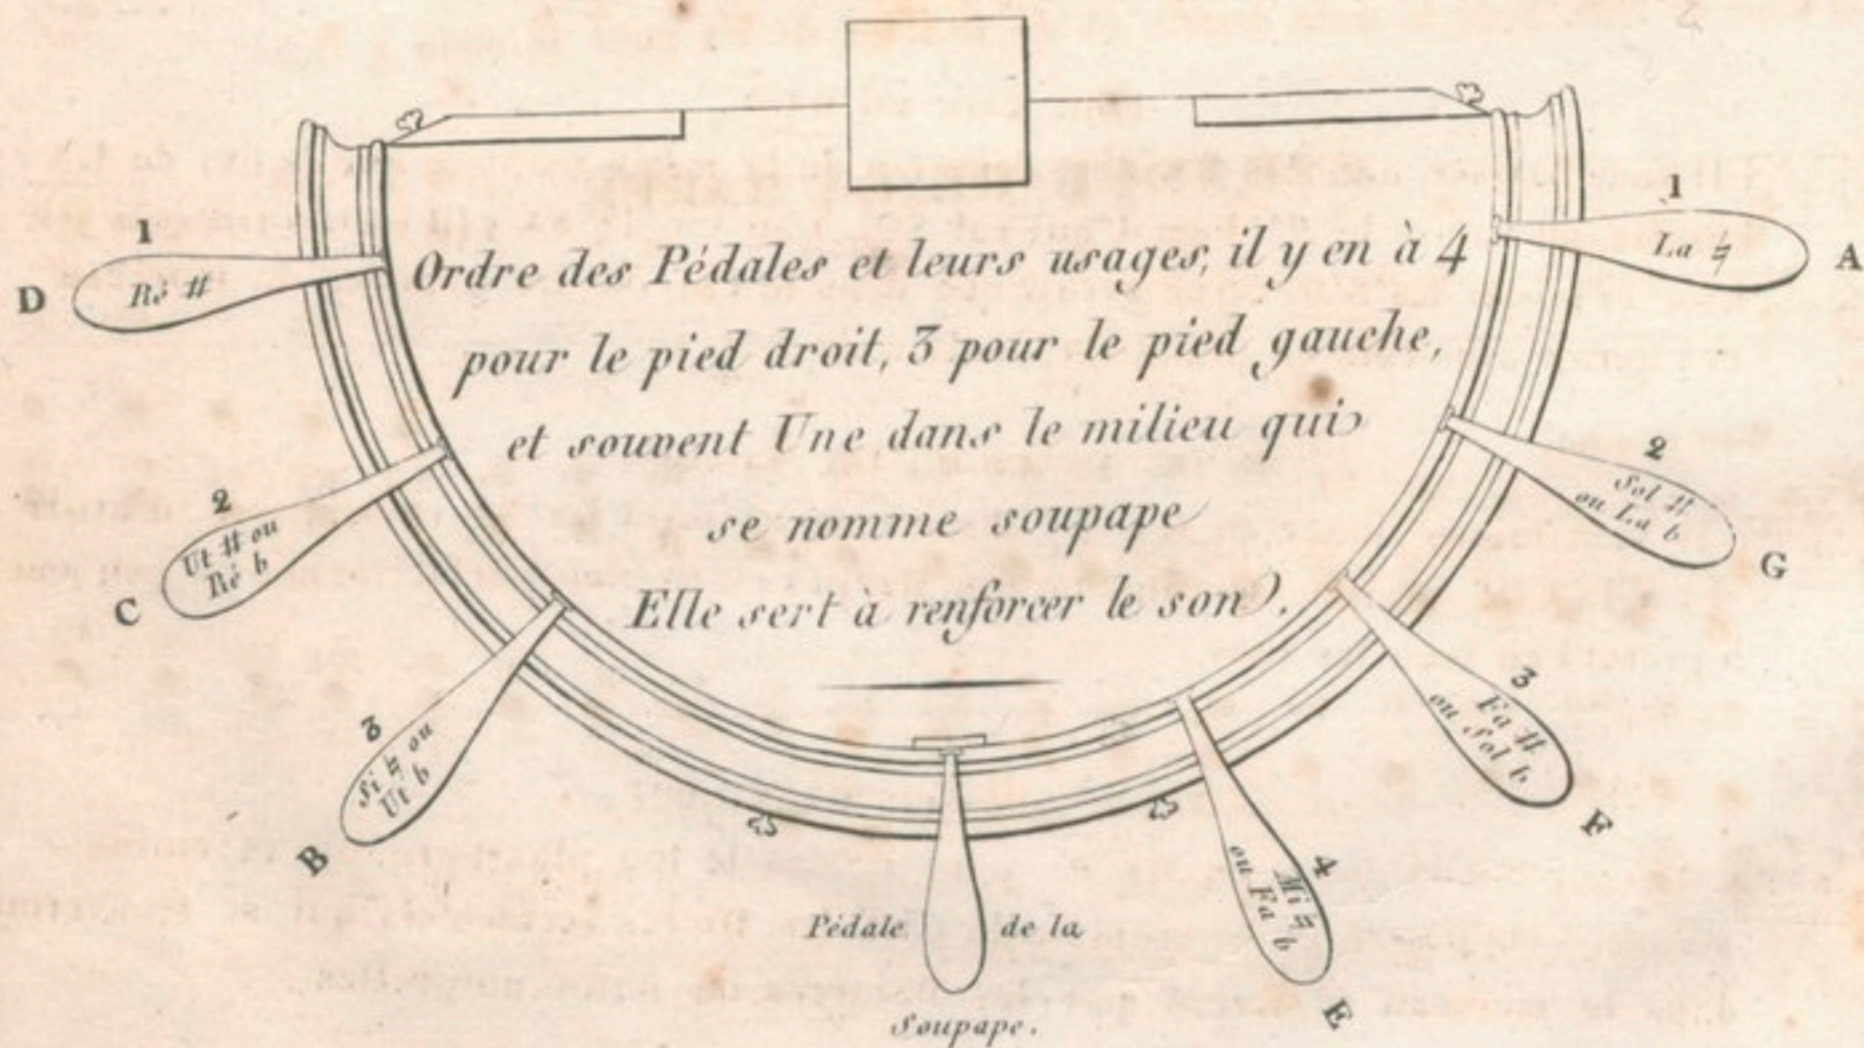 Ordre des Pédales et leurs usages, il y en à 4
pour le pied droit, 3 pour le pied gauche,
et souvent Une dans le milieu qui
se nomme soupape
Elle sert à renforcer le son.
1
Ré #
D
2
Ut # ou
Ré b
C
3
Si ♮ ou
Ut b
B
Pédale de la
Soupape.
4
Mi ♮
ou Fa b
E
3
Fa #
ou Sol b
F
2
Sol #
ou La b
G
1
La ♮
A